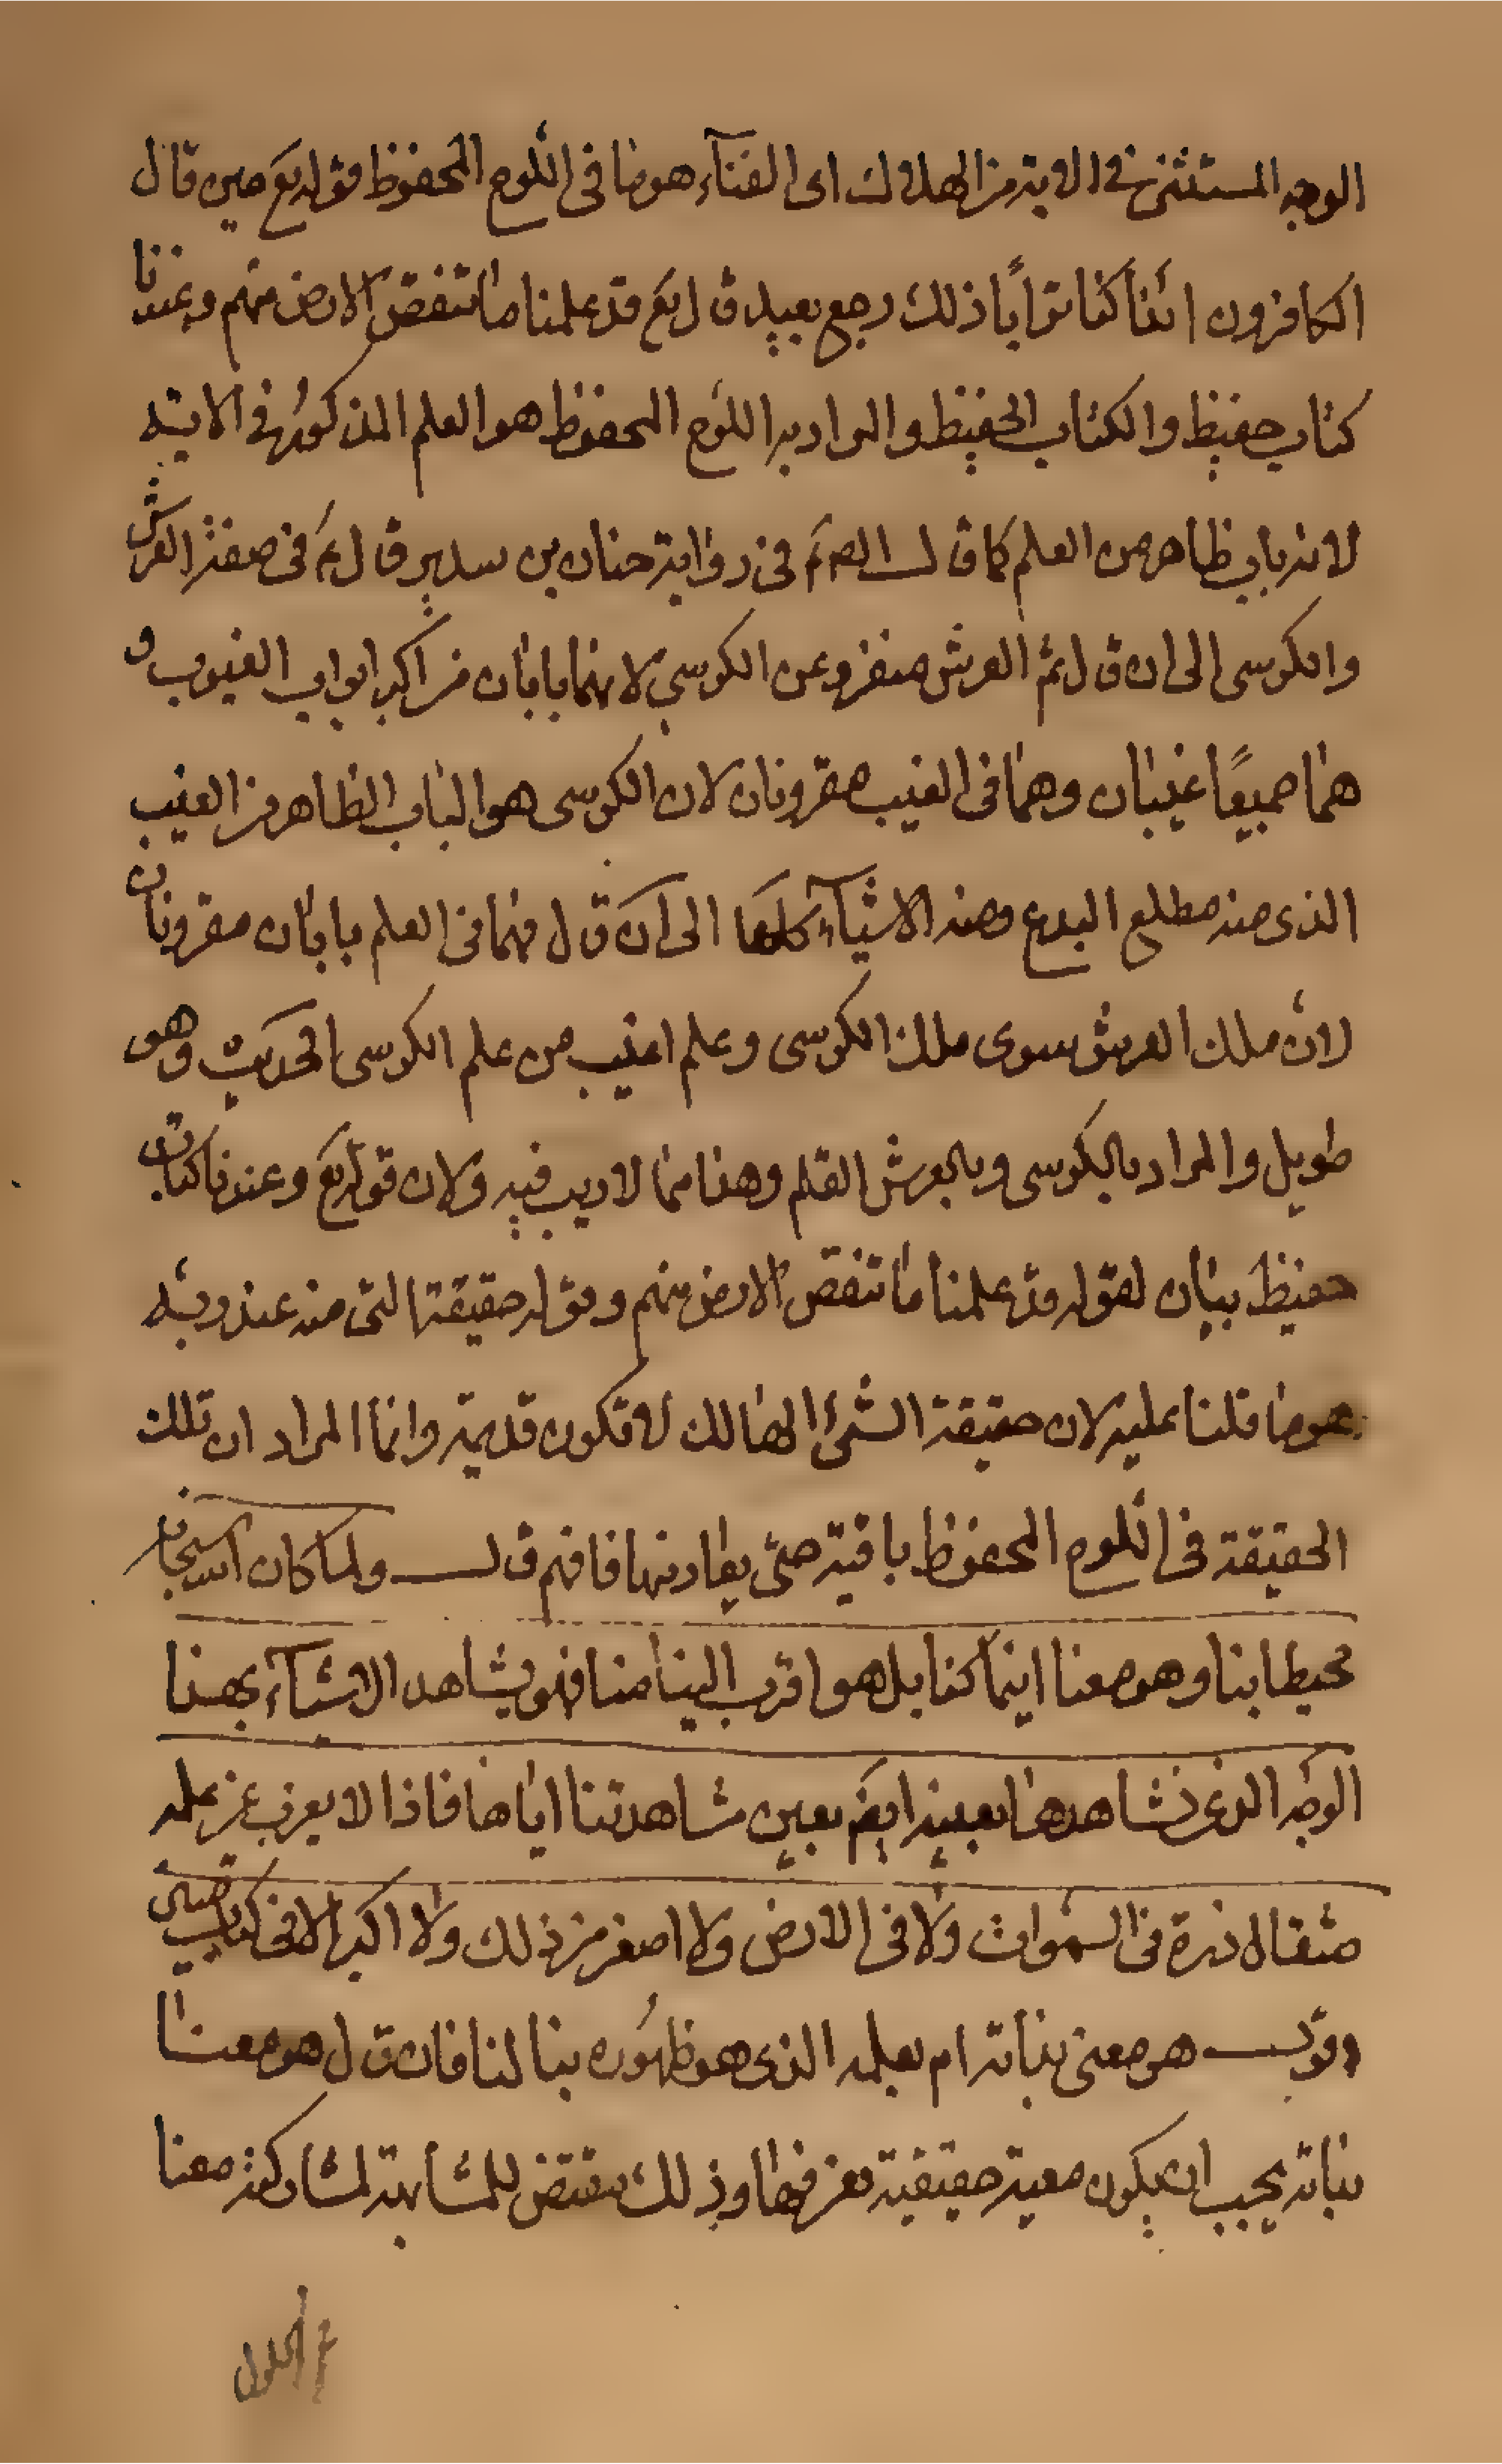 الوجه المستثنى في الاية من الهلاك اى الفنآء هو ما فى اللّوح المحفوظ قوله تع حين قال
الكافرون ائنا كنا ترابًا ذلك رجع بعيد ق ل تع قد علمنا ما تنقص الارض منهم وعندنا
كتاب حفيظ والكتاب الحفيظ والمراد به اللوح المحفوظ هو العلم المذكور في الاية
لانه باب ظاهر من العلم كما ق ل الص ع في رواية حنان بن سدير ق ل ع في صفة العرش
والكرسى الى ان ق ل ثم العرش منفرد عن الكرسي لانهما بابان من اكبر ابواب الغيوب و
هما جميعًا غيبان وهما فى الغيب مقرونان لان الكرسى هو الباب الظاهر من الغيب
الذى منه مطلع البدع ومنه الاشيآء كلها الى ان ق ل فهما فى العلم بابان مقرونان
لانّ ملك العرش سوى ملك الكرسى وعلم اغيب من علم الكرسى الحديث وهو
طويل والمراد بالكرسى وبالعرش القلم وهذا مما لا ريب فيه ولان قوله تع وعندنا كتاب
حفيظ بيان لقوله قد علمنا ما تنقص الارض منهم وقوله حقيقتها التى منه عند ربه
هو ما قلنا عليه لان حقيقة الشئ الهالك لا تكون قديمة وانما المراد ان تلك
الحقيقة فى اللّوح المحفوظ باقية حتى يعاد منها فافهم ق ل ولما كان الله سبحانه
محيطا بنا وهو معنا اينما كنا بل هو اقرب الينا منا فهو يشاهد الاشيآء بهذا
الوجه الذى نشاهدها بعينه ايضم بعين مشاهدتنا اياها فاذا لا يعزب عن علمه
مثقال ذرة فى السموات ولا فى الارض ولا اصغر من ذلك ولا اكبر الا فى كتاب مبين
اقول هو معنى بذاته ام بعلمه الذى هو ظهوره بنا لنا فان ق ل هو معنا
بذاته يجب ان يكون معية حقيقية نعرفها وذلك مقتض للمشابهة لمشاركته معنا